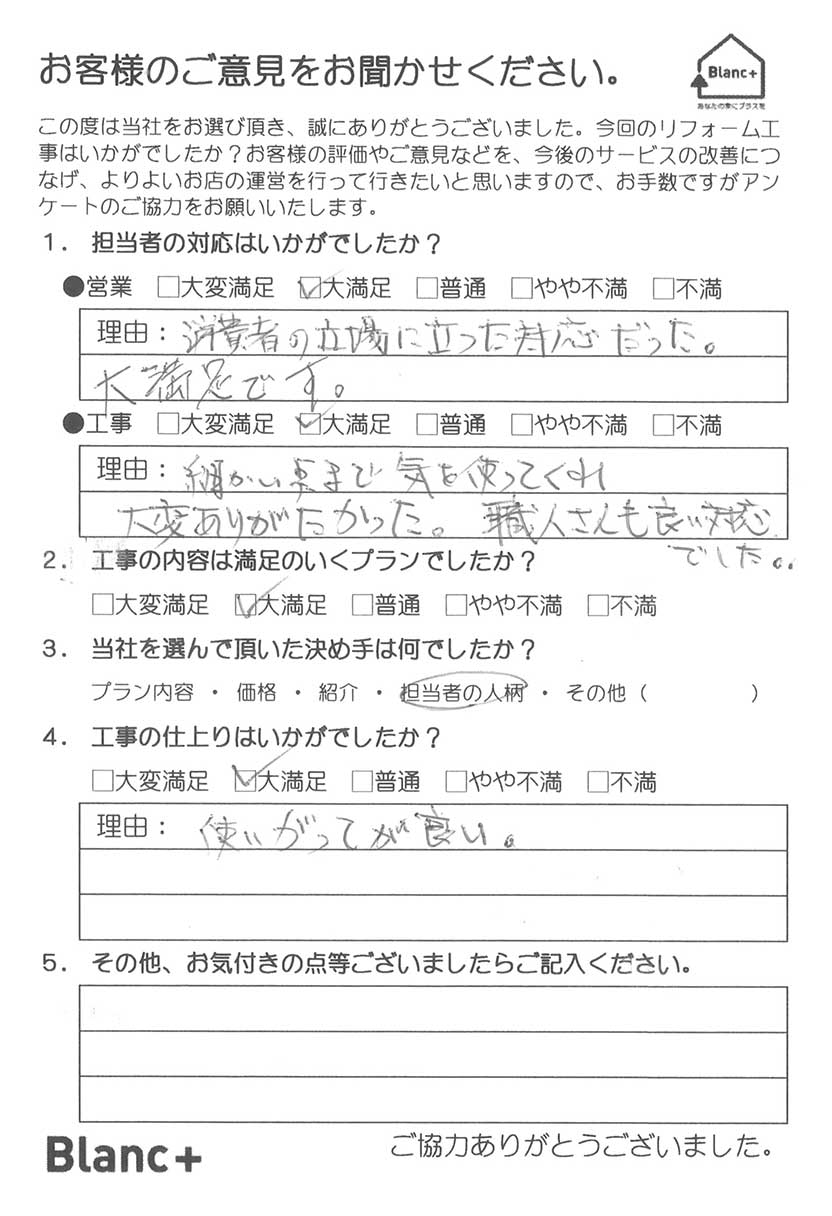 お客様のご意見をお聞かせください。
Blanc+
あなたの家にプラスを
この度は当社をお選び頂き、誠にありがとうございました。今回のリフォーム工
事はいかがでしたか？お客様の評価やご意見などを、今後のサービスの改善につ
なげ、よりよいお店の運営を行って行きたいと思いますので、お手数ですがアン
ケートのご協力をお願いいたします。
1． 担当者の対応はいかがでしたか？
●営業 □大変満足 ☑大満足 □普通 □やや不満 □不満
理由： 消費者の立場に立った対応だった。
大満足です。
●工事 □大変満足 ☑大満足 □普通 □やや不満 □不満
理由： 細かい点まで気を使ってくれ
大変ありがたかった。職人さんも良い対応
でした。
2． 工事の内容は満足のいくプランでしたか？
□大変満足 ☑大満足 □普通 □やや不満 □不満
3． 当社を選んで頂いた決め手は何でしたか？
プラン内容 ・ 価格 ・ 紹介 ・ 担当者の人柄 ・ その他（ ）
4． 工事の仕上りはいかがでしたか？
□大変満足 ☑大満足 □普通 □やや不満 □不満
理由： 使いがってが良い。
5． その他、お気付きの点等ございましたらご記入ください。
Blanc+
ご協力ありがとうございました。